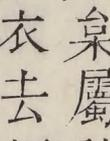 枲屬
衣去